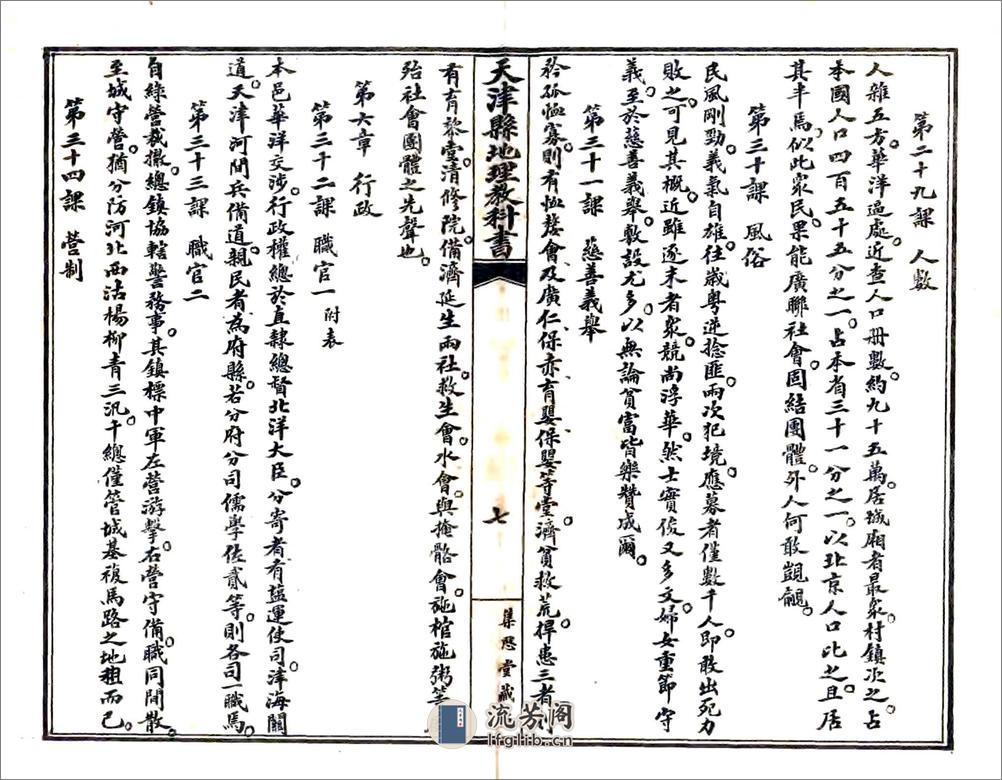 第二十九課　人數
人雜五方華洋逼處。近查人口冊數。約九十五萬。居城廂者最衆。村鎮次之。占
本國人口四百五十五分之一。占本省三十一分之一。以北京人口比之。且居
其半焉。似此衆民。果能廣聯社會。固結團體。外人何敢覬覦。
第三十課　風俗
民風剛勁。義氣自雄。往歲粤逆捻匪兩次犯境。應募者僅數千人。即敢出死力
敗之。可見其概。近雖逐末者衆。競尚浮華。然士實俊乂多文。婦女重節守
義。至於慈善義舉。敷設尤多。以無論貧富皆樂贊成爾。
第三十一課　慈善義舉
矜孤恤寡。則有恤嫠會及廣仁保赤育嬰保嬰等堂。濟貧救荒捍患三者。
天津縣地理教科書
七
集思堂藏
有育黎堂。清修院。備濟延生兩社。救生會。水會。與掩骼會。施棺施粥等
殆社會團體之先聲也。
第六章　行政
第三十二課　職官一　附表
本邑華洋交涉。行政權總於直隸總督北洋大臣。分寄者有鹽運使司津海關
道。天津河間兵備道。親民者為府縣。若分府分司儒學佐貳等。則各司一職焉。
第三十三課　職官二
自綠營裁撤。總鎮協轄警務事。其鎮標中軍左營游擊。右營守備。職同閒散。
至城守營。猶分防河北西沽楊柳青三汛。千總僅管城基複馬路之地租而已。
第三十四課　營制
流芳閣
lfglib.cn